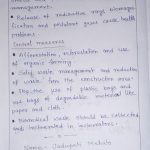 • Release of radioactive rays, biomagni-
fication and pollutant gases cause health
problems.
Social measures
• Afforestation, reforestation and use
of organic farming.
• Safe waste management and reduction
of waste from the construction area.
• Stop the use of plastic bags and
use bags of degradable material like
paper and cloth.
• Biomedical waste should be collected
and incinerated in incinerators.
Name - Jadupati Mahato